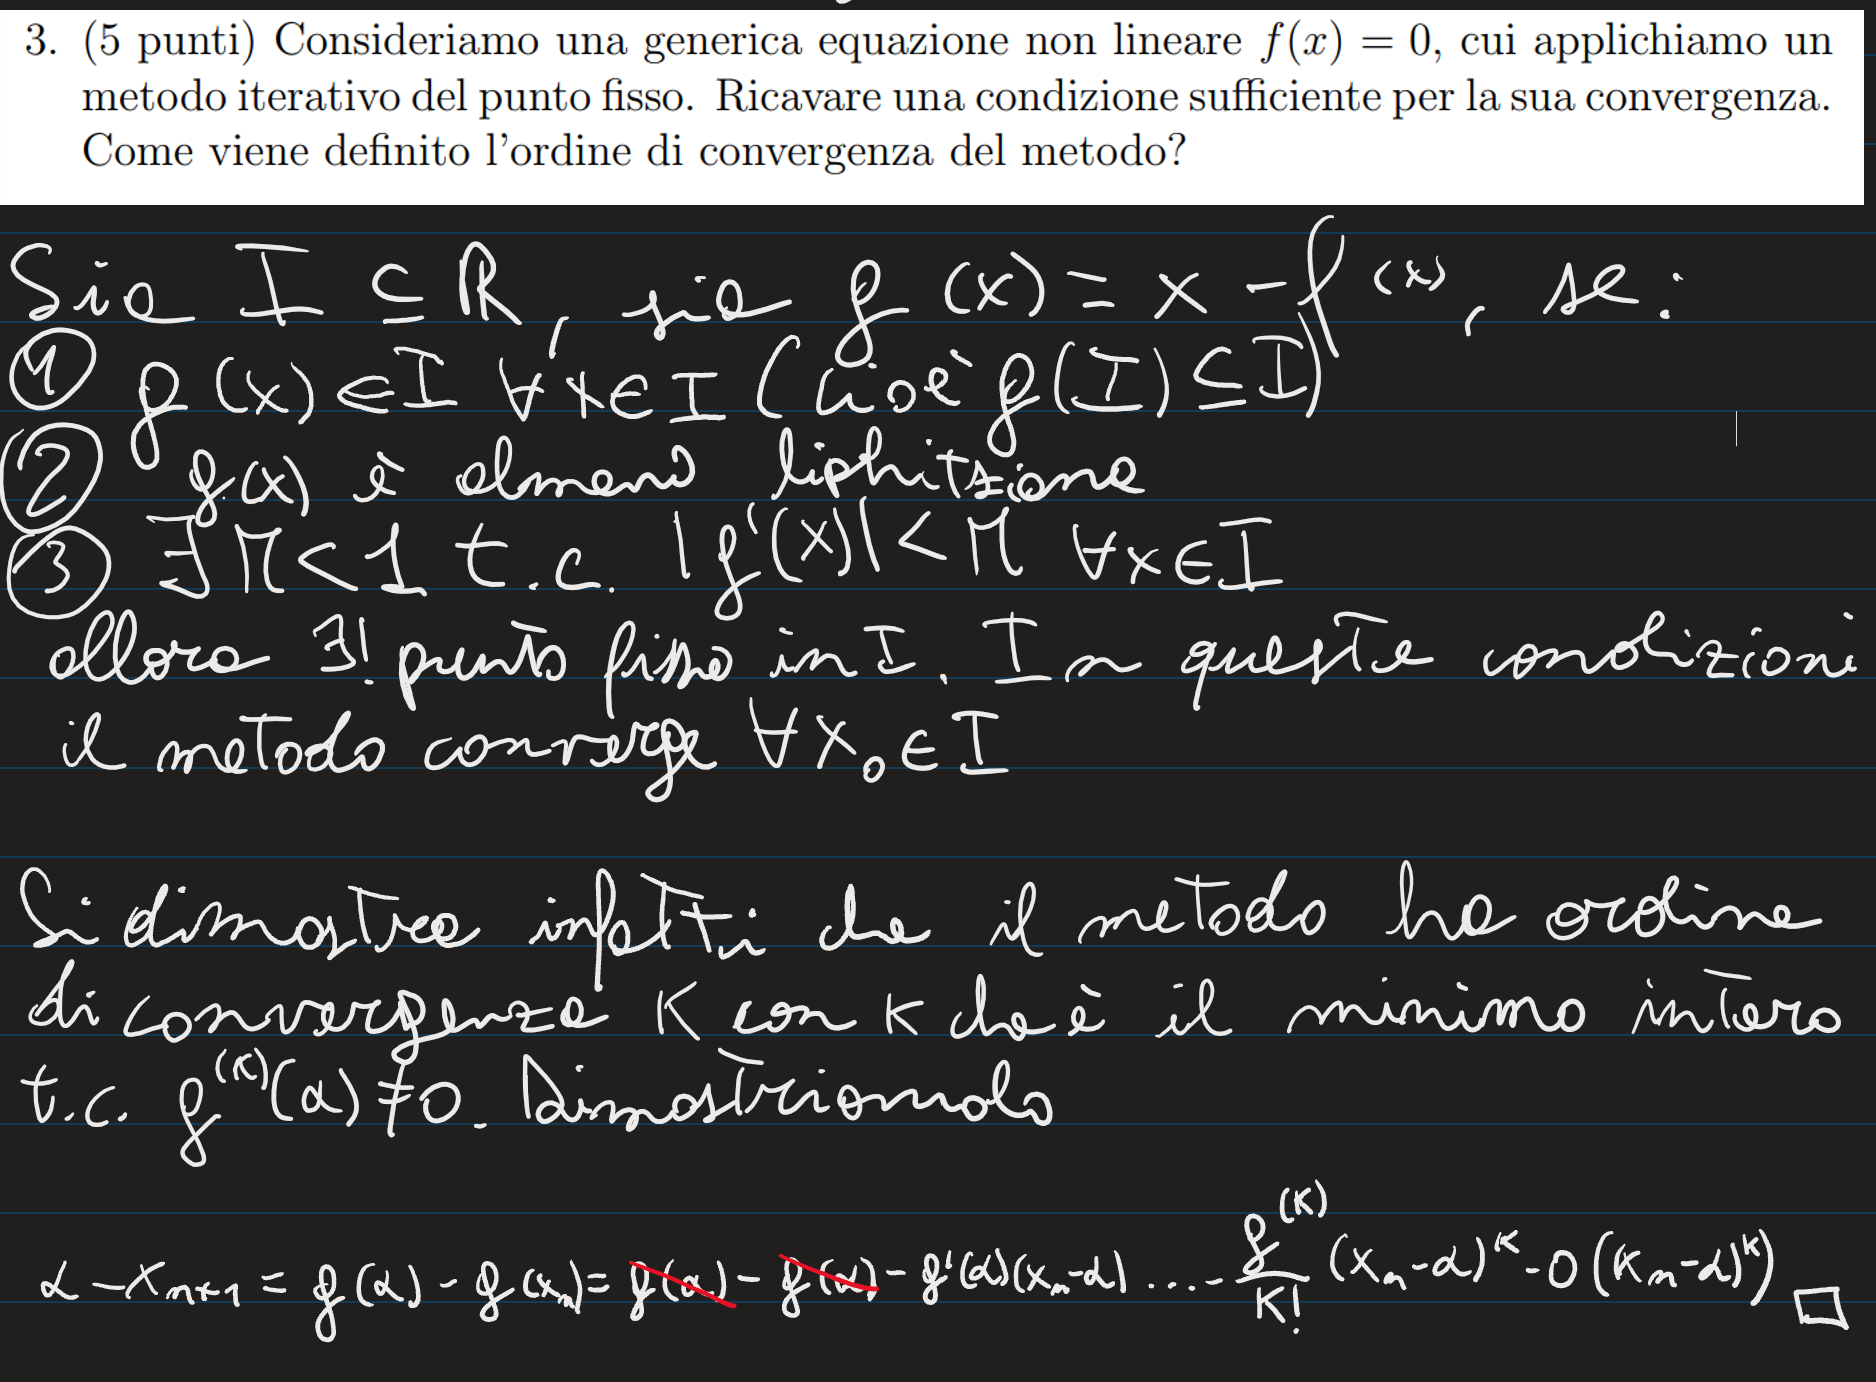 3. (5 punti) Consideriamo una generica equazione non lineare f(x) = 0, cui applichiamo un
metodo iterativo del punto fisso. Ricavare una condizione sufficiente per la sua convergenza.
Come viene definito l'ordine di convergenza del metodo?
Sia I ⊆ ℝ, sia g(x) = x - f(x), se:
① g(x) ∈ I ∀x ∈ I (cioè g(I) ⊆ I)
② g(x) è almeno liphitsziana
③ ∃M<1 t.c. |g'(x)| < M ∀x ∈ I
allora ∃! punto fisso in I. In queste condizioni
il metodo converge ∀x₀ ∈ I
Si dimostra infatti che il metodo ha ordine
di convergenza K con K che è il minimo intero
t.c. g⁽ᴷ⁾(α) ≠ 0. Dimostriamolo
α - xₙ₊₁ = g(α) - g(xₙ) = g(α) - g(α) - g'(α)(xₙ-α) ... - g⁽ᴷ⁾/K! (xₙ-α)ᴷ - o((xₙ-α)ᴷ) □